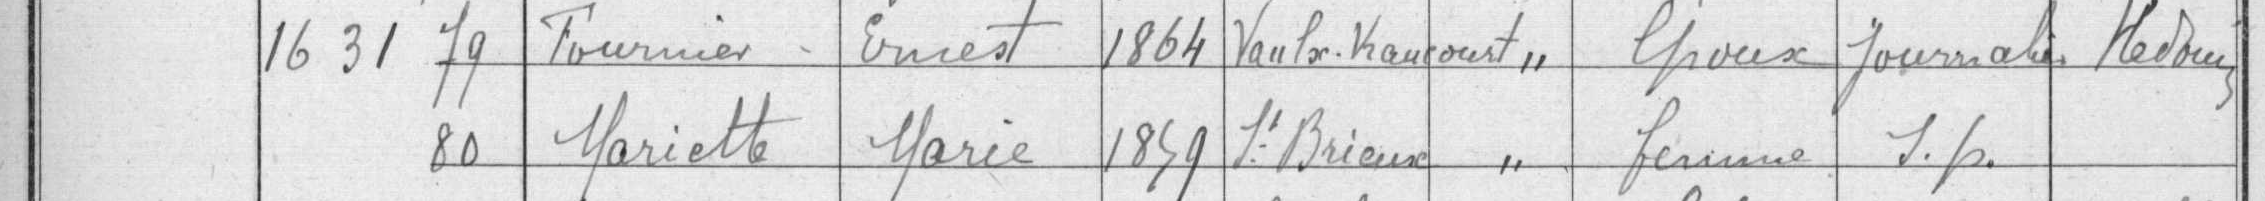 16 31 79 Fournier Ernest 1864 Vaulx-Vraucourt " Epoux Journalier Hedouin
80 Mariette Marie 1859 St Brieux " femme S.p.